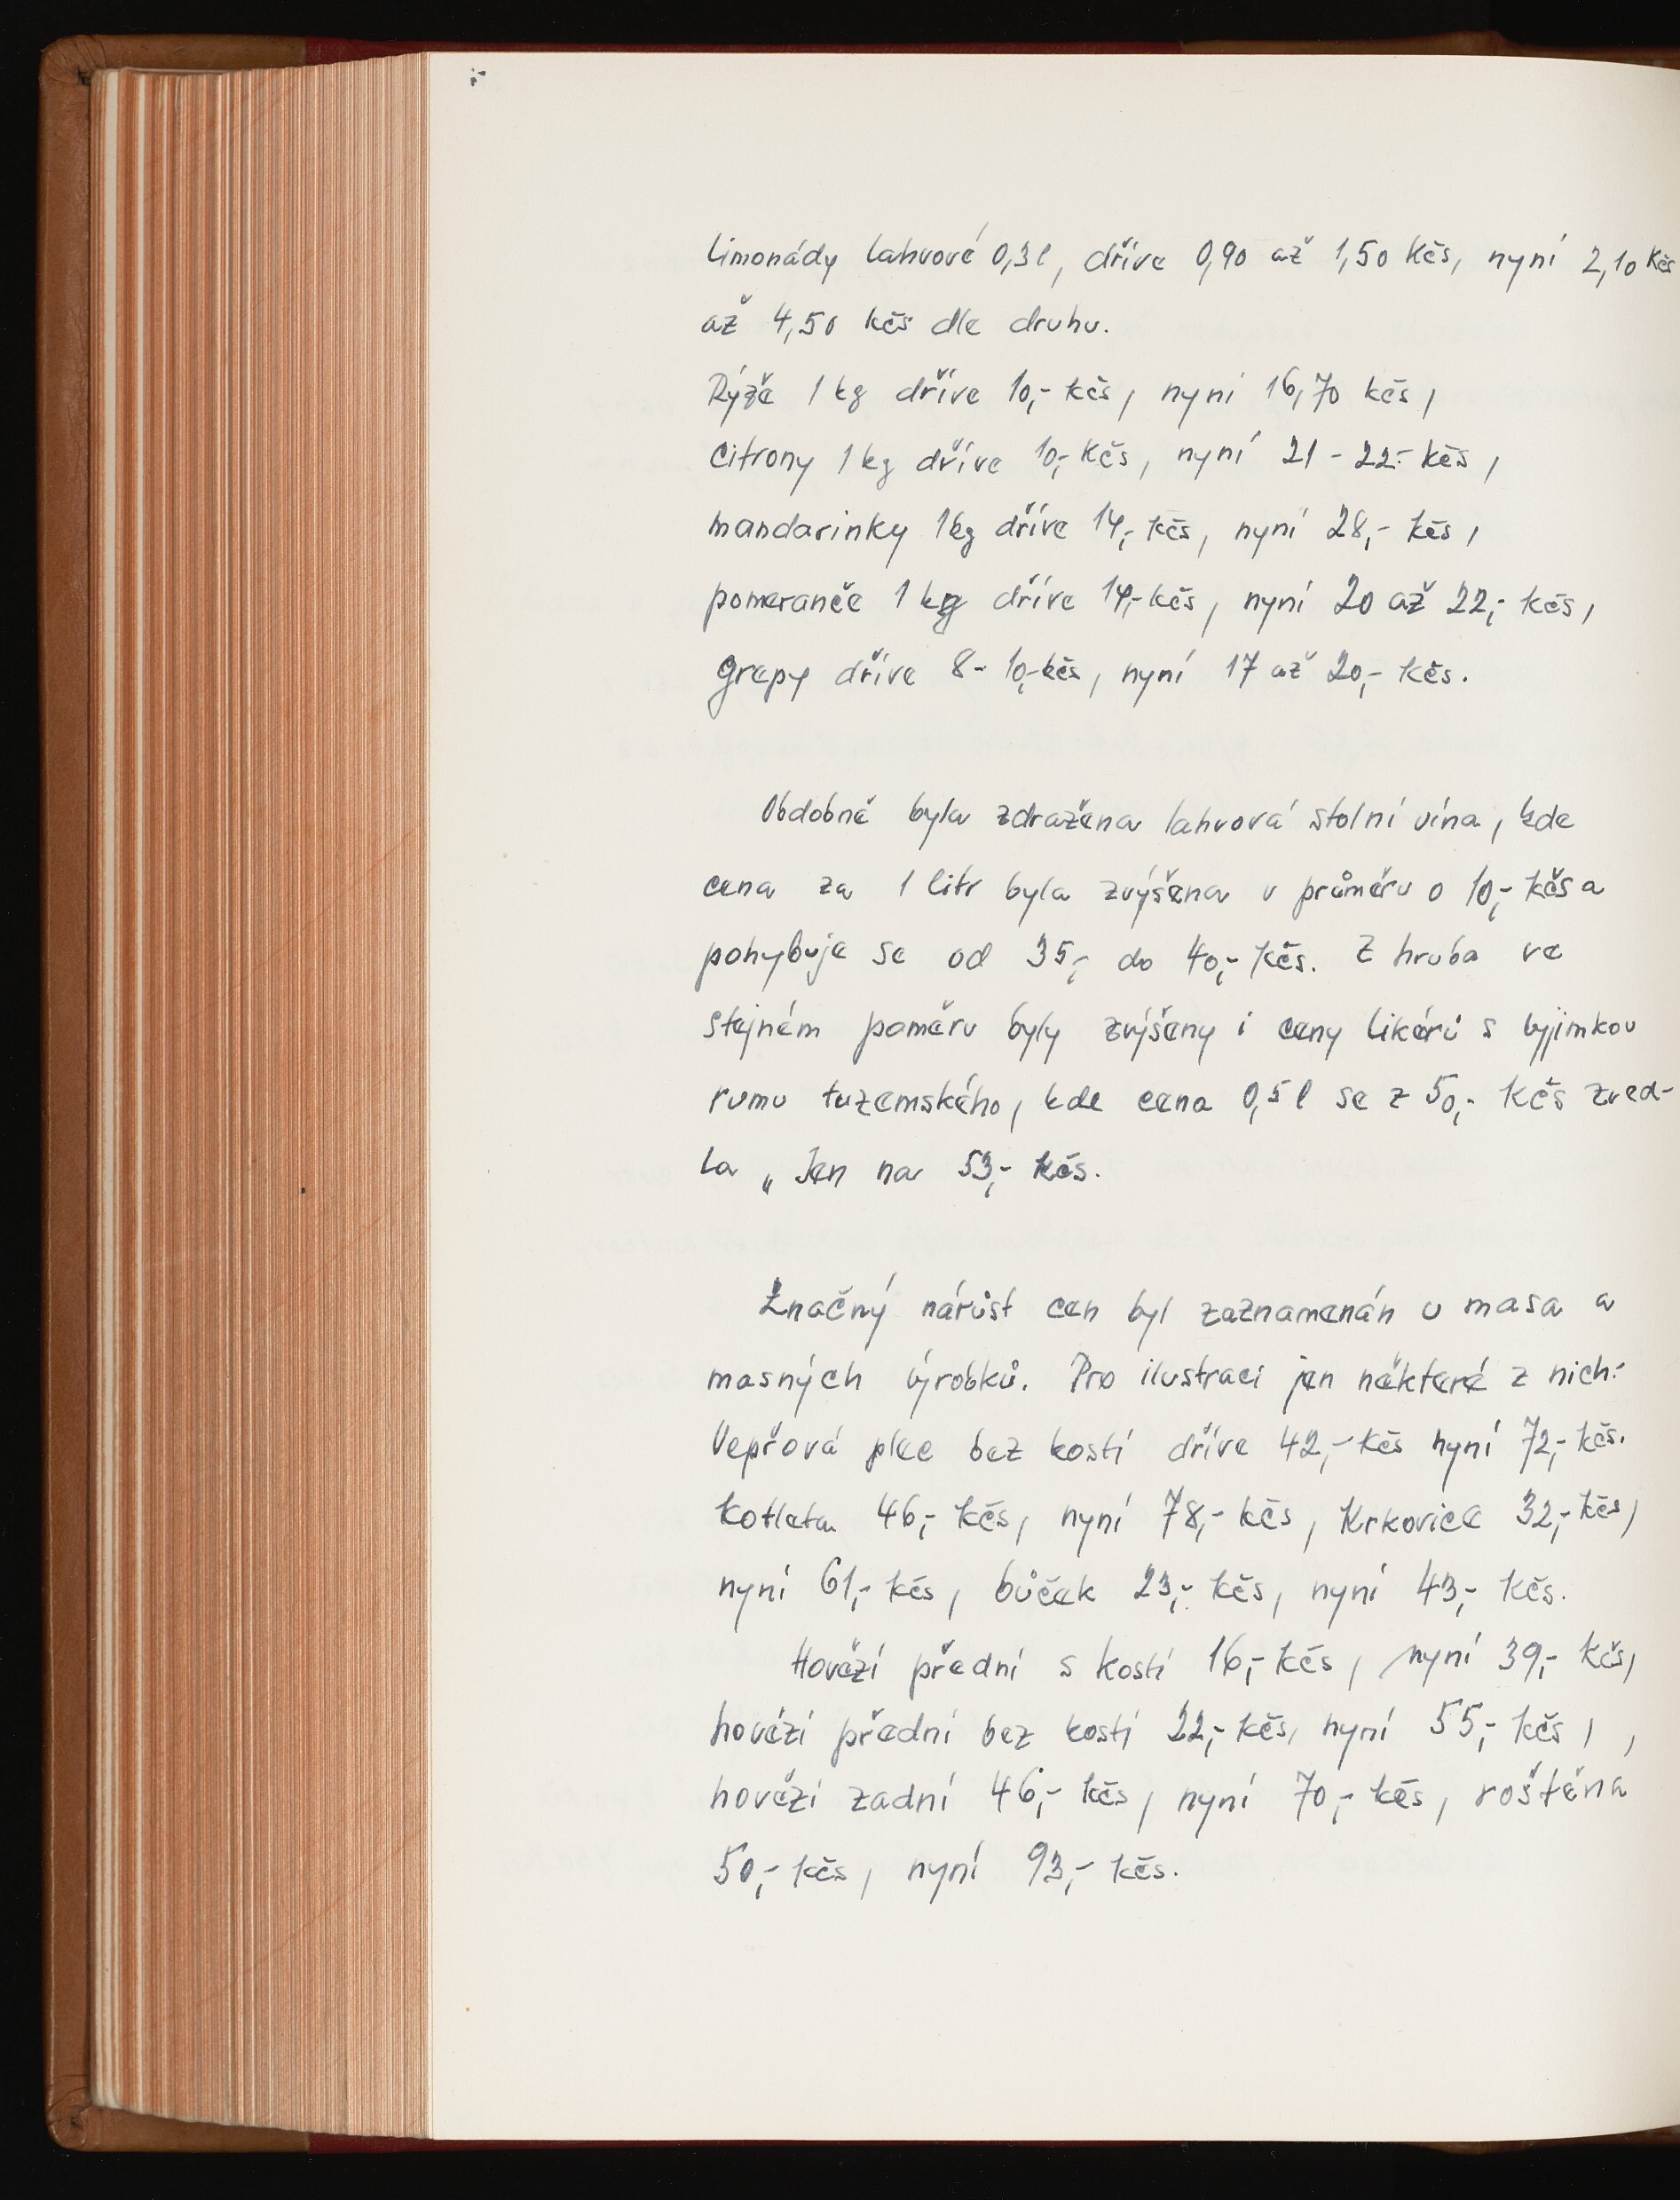 limonády lahvové 0,3 l, dříve 0,90 až 1,50 Kčs, nyní 2,10 Kčs
až 4,50 kčs dle druhu.
Rýže 1 kg dříve 10,- kčs, nyní 16,70 kčs,
Citrony 1 kg dříve 10,- Kčs, nyní 21 - 22.- kčs,
mandarinky 1 kg dříve 14,- kčs, nyní 28,- kčs,
pomeranče 1 kg dříve 14,- kčs, nyní 20 až 22,- kčs,
grepy dříve 8 - 10,- kčs, nyní 17 až 20,- kčs.
Obdobně byla zdražena lahvová stolní vína, kde
cena za 1 litr byla zvýšena v průměru o 10,- kčs a
pohybuje se od 35,- do 40,- Kčs. Z hruba ve
stejném poměru byly zvýšeny i ceny likérů s vyjimkou
rumu tuzemského, kde cena 0,5 l se z 50,- Kčs zved-
la „ Jen na 53,- kčs.
Značný nárůst cen byl zaznamenán u masa a
masných výrobků. Pro ilustraci jen některé z nich:
Vepřová plec bez kostí dříve 42,- Kčs nyní 72,- kčs.
kotleta 46,- kčs, nyní 78,- kčs, Krkovice 32,- kčs,
nyní 61,- kčs, bůček 23,- kčs, nyní 43,- kčs.
Hovězí přední s kostí 16,- kčs, nyní 39,- kčs,
hovězí přední bez kostí 22,- kčs, nyní 55,- kčs, ,
hovězí zadní 46,- kčs, nyní 70,- kčs, roštěna
50,- kčs, nyní 93,- kčs.